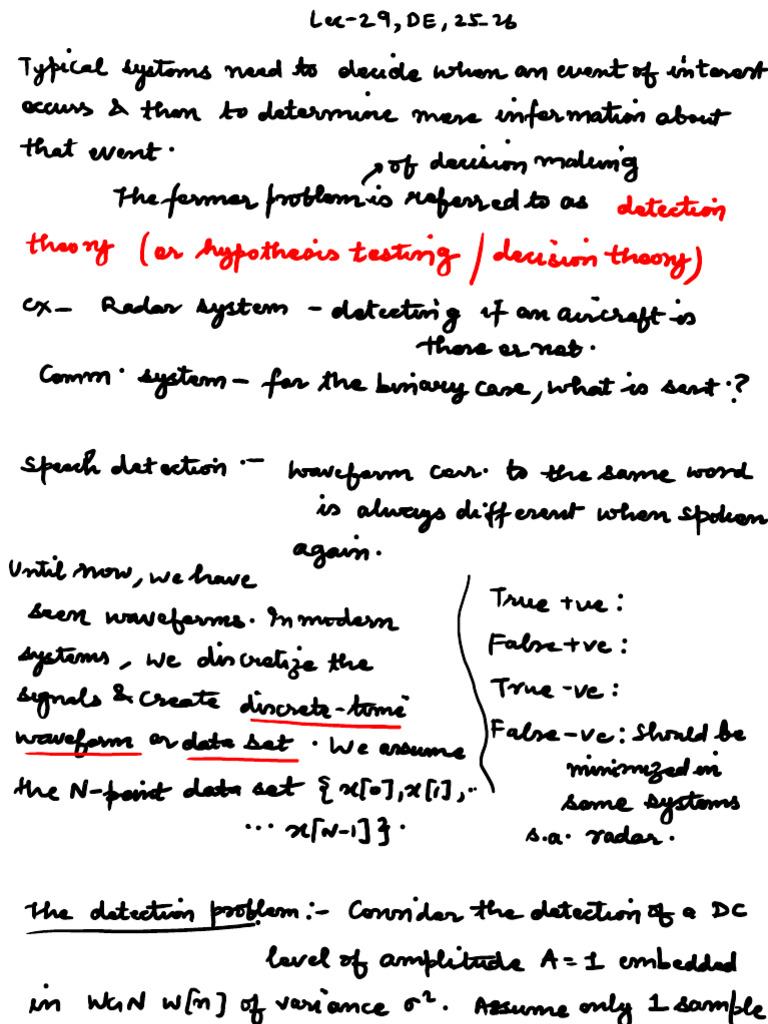 Lec-29, DE, 25-26
Typical systems need to decide when an event of interest
occurs & then to determine more information about
that event.
of decision making
The former problem is referred to as detection
theory (or hypothesis testing / decision theory)
ex- Radar system - detecting if an aircraft is
there or not.
Comm. system - for the binary case, what is sent.?
Speech detection :- waveform corr. to the same word
is always different when spoken
again.
Until now, we have
seen waveforms. In modern
systems, we discretize the
signals & create discrete-time
waveform or data set. We assume
the N-point data set { x[0], x[1], ..
... x[N-1]}.
True +ve :
False +ve :
True -ve :
False -ve : Should be
minimized in
some systems
s.a. radar.
The detection problem :- Consider the detection of a DC
level of amplitude A = 1 embedded
in WGN w[n] of variance σ². Assume only 1 sample